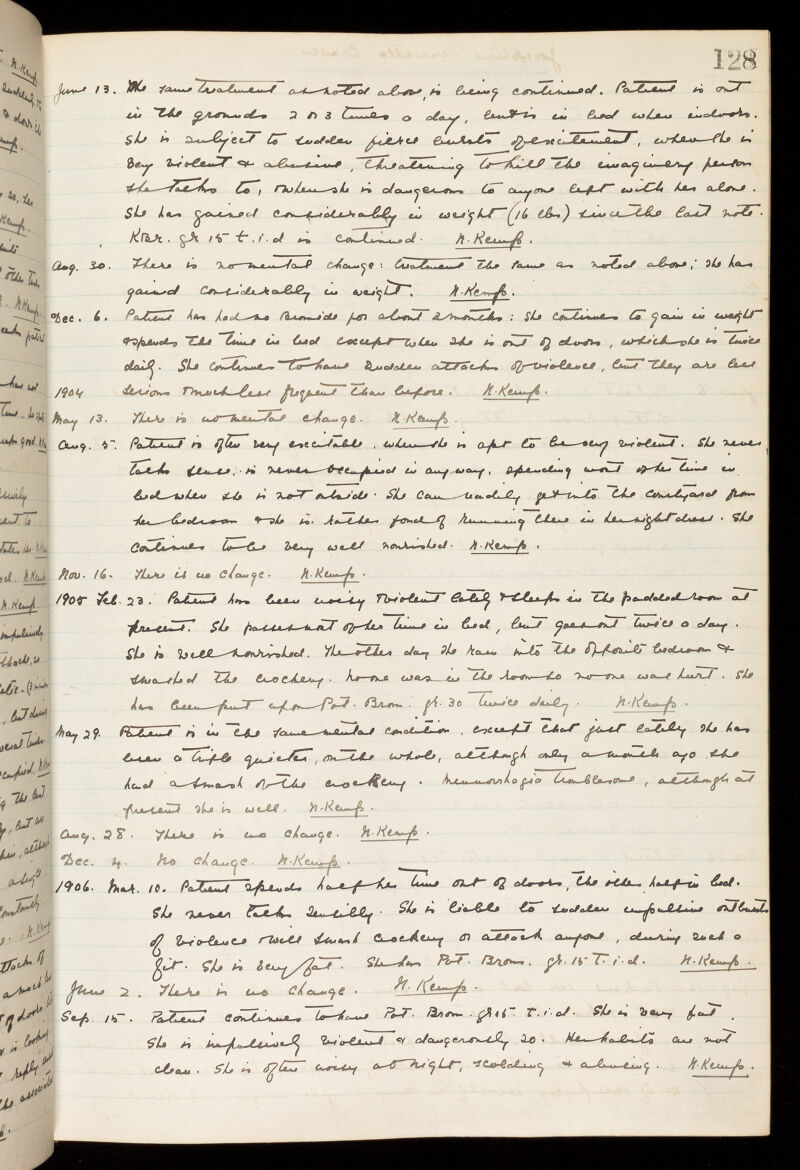 128
June 13. The same treatment as noted above, is being continued. Patient is out
in the grounds 2 or 3 times a day, but is in bed when indoors.
She is subject to sudden fierce bursts of excitement, when she is
very violent & abusive, threatening to kill the imaginery person
she talks to, & when she is dangerous to anyone left with her alone.
She has gained considerably in weight (16 lbs) since the last note.
KBr. gr 15 t.i.d is continued. N. Kemp.
Aug. 30. There is no mental change: treatment the same as noted above; she has
gained considerably in weight. N. Kemp.
Dec. 6. Patient has had no Bromide for about 2 months: She continues to gain in weight
& spends the time in bed except when she is out of doors, which she is twice
daily. She continues to have sudden attacks of violence, but they are less
1904 serious & much less frequent than before. N. Kemp.
May 13. There is no mental change. N. Kemp.
Aug. 5. Patient is often very excitable, when she is apt to be very violent. She never
talks sense, is never occupied in any way, spending most of her time in
bed when she is not outside. She can readily get into the courtyard from
her bedroom & she is rather fond of running there in her nightdress. She
continues to be very well nourished. N. Kemp.
Nov. 16. There is no change. N. Kemp.
1905 Feb. 23. Patient has been noisy & violent lately & sleeps in the padded room at
present. She passes most of her time in bed, but goes out twice a day.
She is well nourished. The other day she ran into the opposite bedroom &
smashed the crockery. No one was in the room so no one was hurt. She
has been put upon Pot. Brom. gr. 30 twice daily. N. Kemp.
May 29. Patient is in the same mental condition, except that just lately she has
been a trifle quieter, on the whole, although only a month ago she
had a smash of the crockery. Menorrhagia troublesome, although at
present she is well. N. Kemp.
Aug. 28. There is no change. N. Kemp.
Dec. 4. No change. N. Kemp.
1906. Mar. 10. Patient spends half her time out of doors, the other half in bed.
She never talks sensibly. She is liable to sudden impulsive outbursts
of violence & will smash crockery or attack anyone, during such a
fit. She is very fat. She has Pot. Brom. gr. 15 t.i.d. N. Kemp.
June 2. There is no change. N. Kemp.
Sep. 15. Patient continues to have Pot. Brom. gr 15 t.i.d. She is very fat.
She is impulsively violent & dangerously so. Her habits are not
clean. She is often noisy at night, scolding & abusing. N. Kemp.